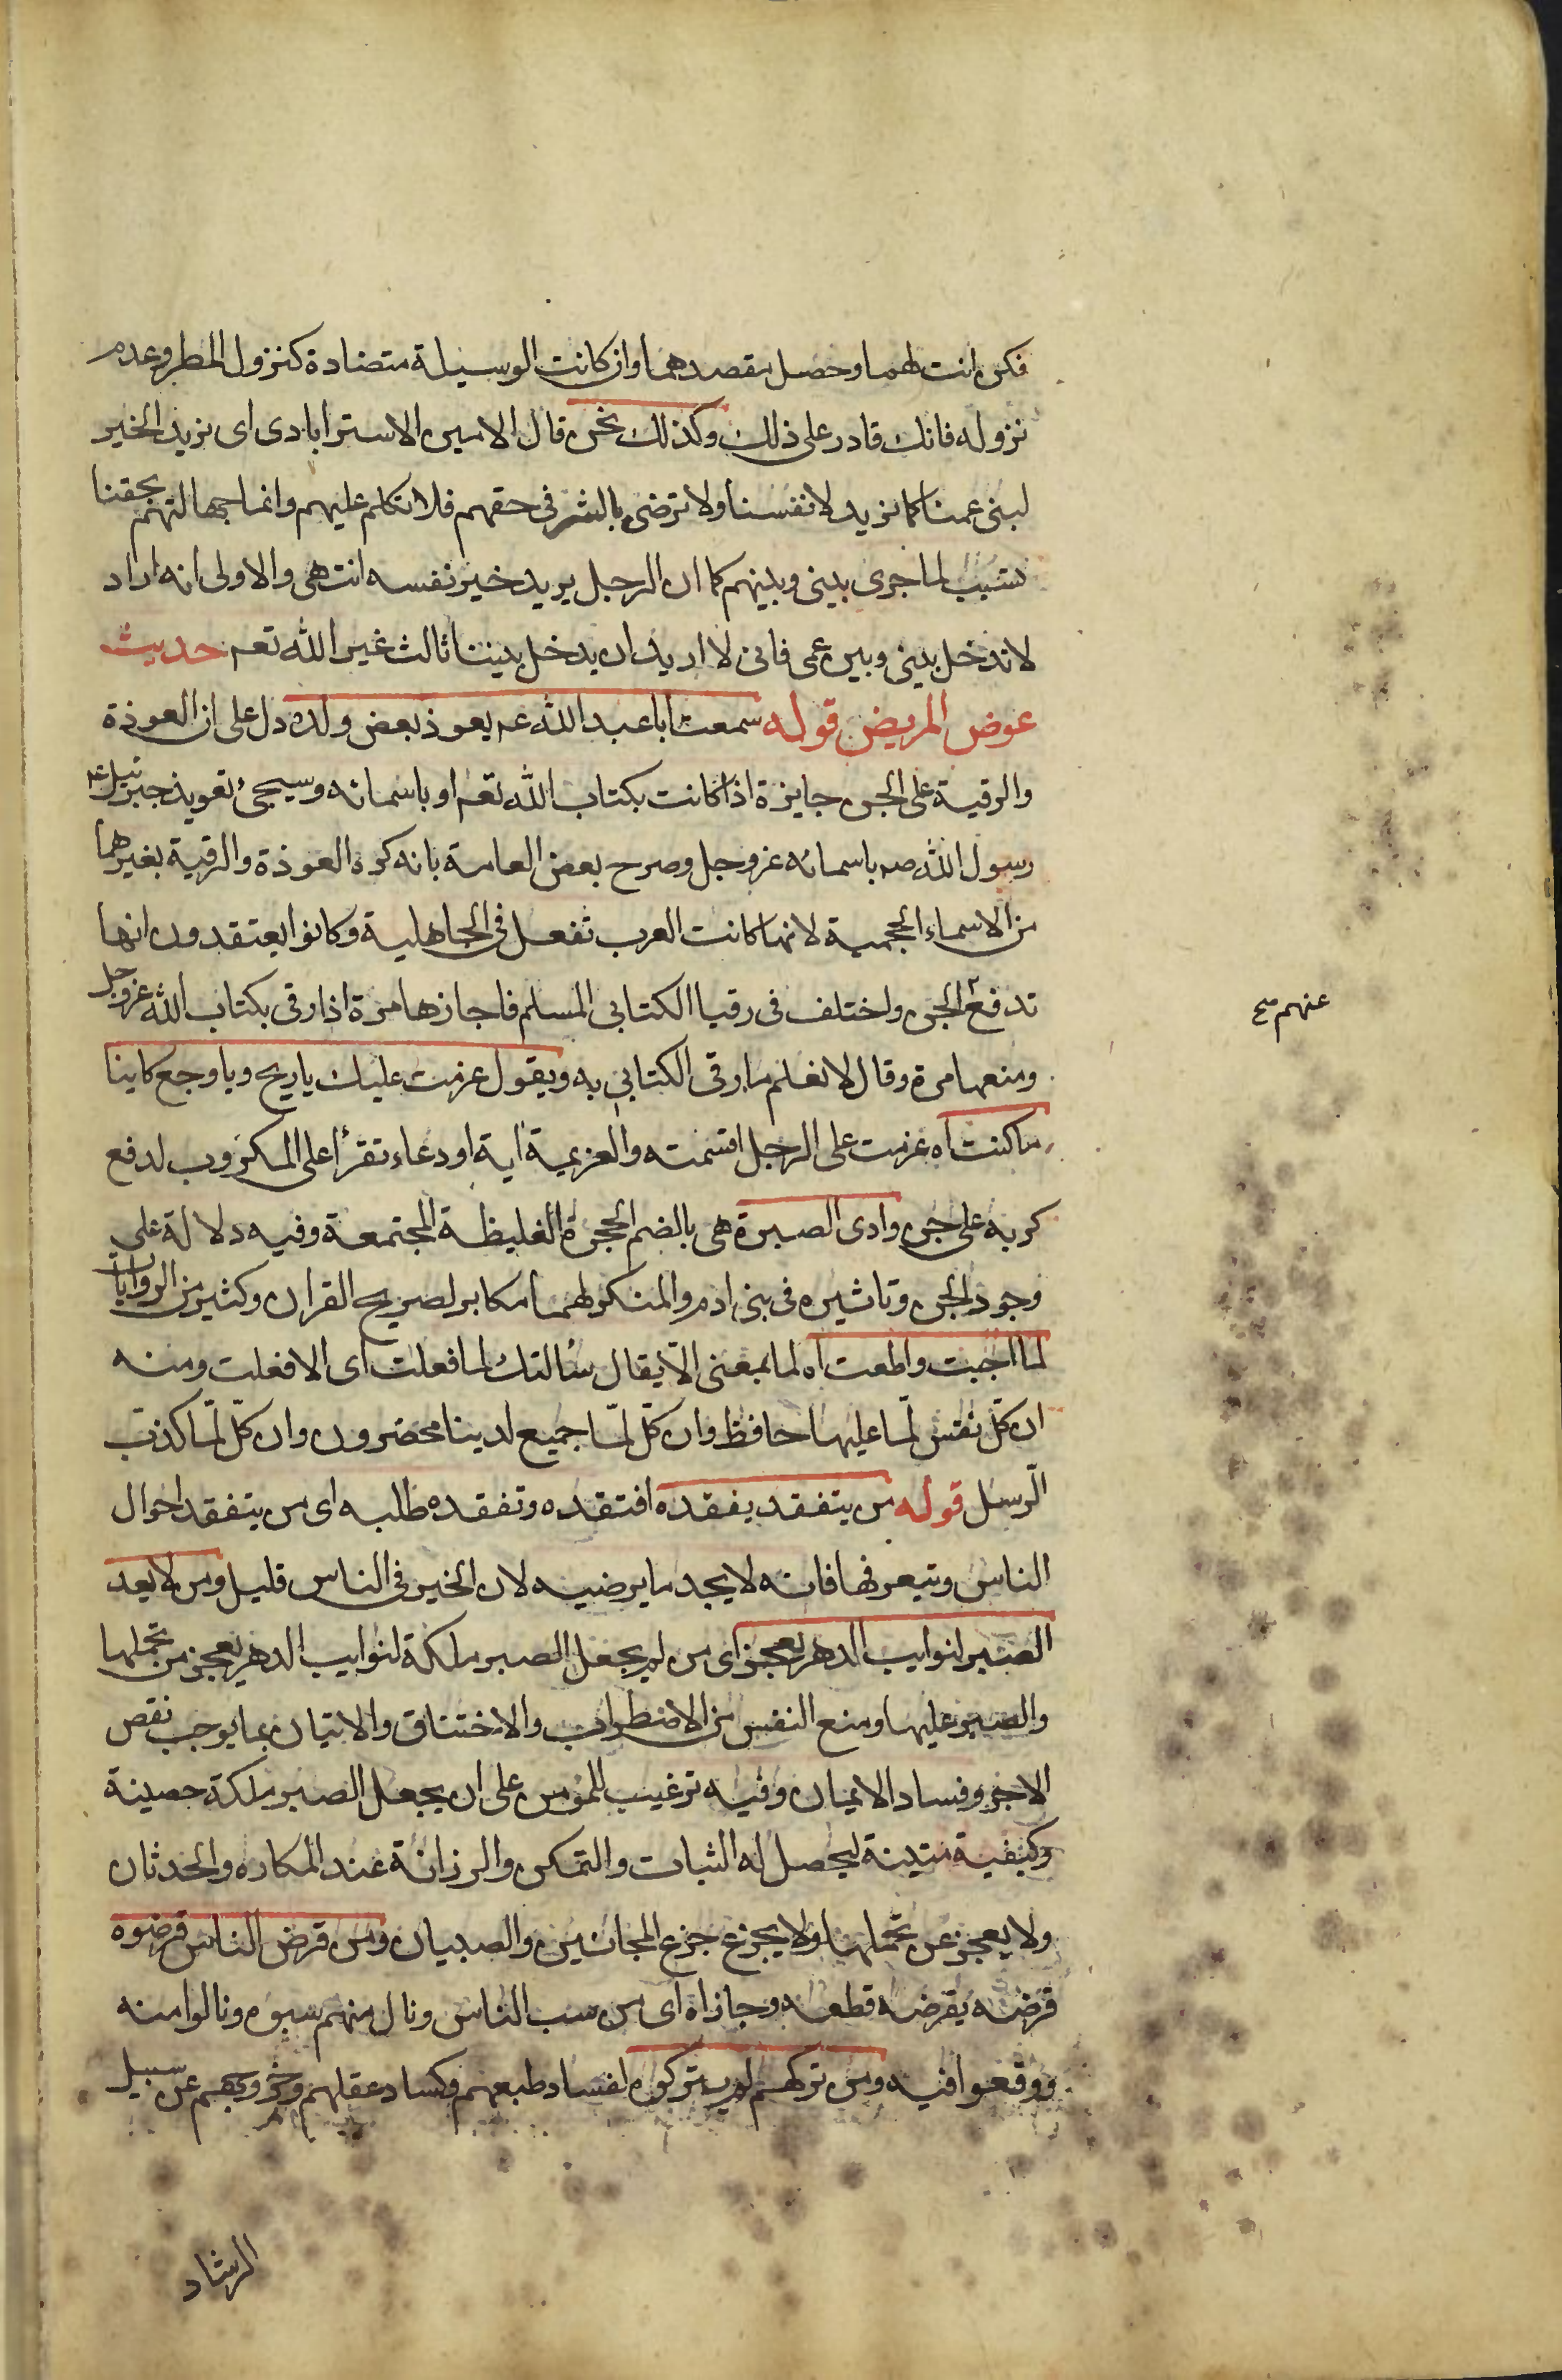 فكن انت لهما وحصل مقصدهما وان كانت الوسيلة متضادة كنزول المطر وعدم
نزوله فانك قادر على ذلك وكذلك نحن قال الامين الاسترابادى اى نريد الخير
لبنى عمنا كما نريد لانفسنا ولا نرضى بالشر فى حقهم فلا تتكلم عليهم وانما جهالتهم بحقنا
سبب لما جرى بينى وبينهم كما ان الرجل يريد خير نفسه انتهى والاولى انه اراد
لا تدخل بينى وبين عمى فانى لا اريد ان يدخل بيننا ثالث غير الله تعم حديث
عوض المريض قوله سمعت ابا عبد الله عم يعوذ بعض ولده دل على ان العوذة
والرقية على الجن جايزة اذا كانت بكتاب الله تعم او باسمائه وسيجئ تعويذ جبرئيل عم
رسول الله صم باسمائه عز وجل وصرح بعض العامة بانه كره العوذة والرقية بغيرهما
من الاسماء العجمية لانها كانت العرب تفعل فى الجاهلية وكانوا يعتقدون انها
تدفع الجن واختلف فى رقيا الكتابى المسلم فاجازها مرة اذا رقى بكتاب الله عز وجل
عنهم صح
ومنعها مرة وقال لا نعلم ما رقى الكتابى به ويقول عزمت عليك ياريح وياوجع كاينا
ما كنت اه عزمت على الرجل اقسمته والعزيمة اية او دعاء تقرأ على المكروب لدفع
كربه على جن وادى الصبرة هى بالضم الحجرة الغليظة المجتمعة وفيه دلالة على
وجود الجن وتاثيره فى بنى ادم والمنكر لهما مكابر لصريح القران وكثير من الروايات
لما اجبت واطعت اه لما بمعنى الّا يقال سالتك لما فعلت اى الا فعلت ومنه
ان كلّ نفس لمّا عليها حافظ وان كلّ لمّا جميع لدينا محضرون وان كلّ لمّا كذب
الرّسل قوله من يتفقد يفقد ه افتقده وتفقده طلبه اى من يتفقد احوال
الناس ويتعرفها فانه لا يجد ما يرضيه لان الخير فى الناس قليل ومن لا يعد
الصبر لنوايب الدهر يعجز اى من لم يجعل الصبر ملكة لنوايب الدهر يعجز من تحملها
والصبر عليها ومنع النفس من الاضطراب والاختناق والاتيان بما يوجب نقص
الاجر وفساد الايمان وفيه ترغيب للمؤمن على ان يجعل الصبر ملكة حصينة
وكيفية متينة ليحصل له الثبات والتمكن والرزانة عند المكاره والحدثان
ولا يعجز عن تحملها ولا يجزع جزع المجانين والصبيان ومن قرض الناس قرضوه
قرضه يقرضه قطعه وجازاه اى من سب الناس ونال منهم سبوه ونالوا منه
ووقعوا فيه ومن تركهم لم يتركوه لفساد طبعهم وكساد عقلهم وخروجهم عن سبيل
الرشاد